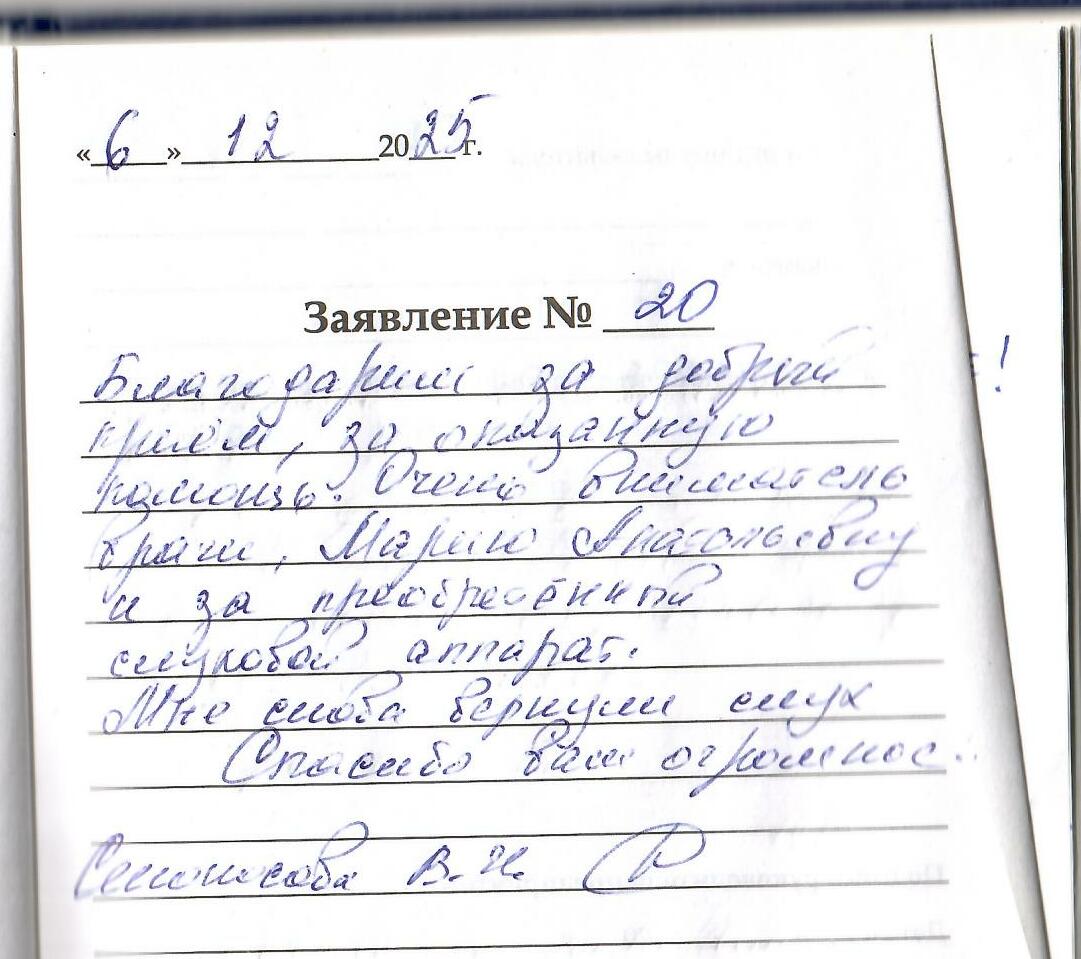 «6» 12 2025 г.
Заявление № 20
Благодарим за добрый
приём, за оказанную
помощь. Очень вниматель
врачи, Марию Анатольевну
и за преобретённый
слуховой аппарат.
Мне снова вернули слух
Спасибо вам огромное.
В.Н.
!